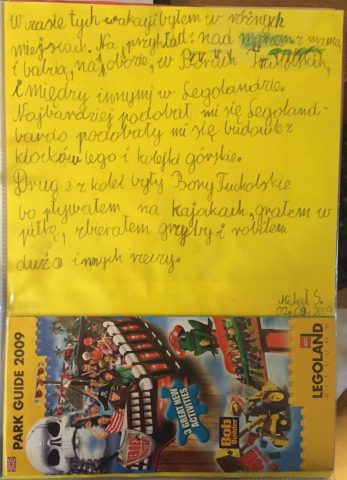 W czasie tych wakacji byłem w różnych
miejscach. Na przykład: nad morzem z mamą
i babcią, na obozie, w Borach Tucholskich,
i między innymi w Legolandzie.
Najbardziej podobał mi się Legoland-
bardo podobały mi się budowle z
klocków lego i kolejki górskie.
Drugie z kolei były Bory Tucholskie
bo pływałem na kajakach, grałem w
piłkę, zbierałem grzyby i robiłem
dużo innych rzeczy.
Michał S.
02.09.2009
PARK GUIDE 2009
3 GREAT NEW
ACTIVITIES
Bob
the Builder
LEGO
LEGOLAND
BILLUND